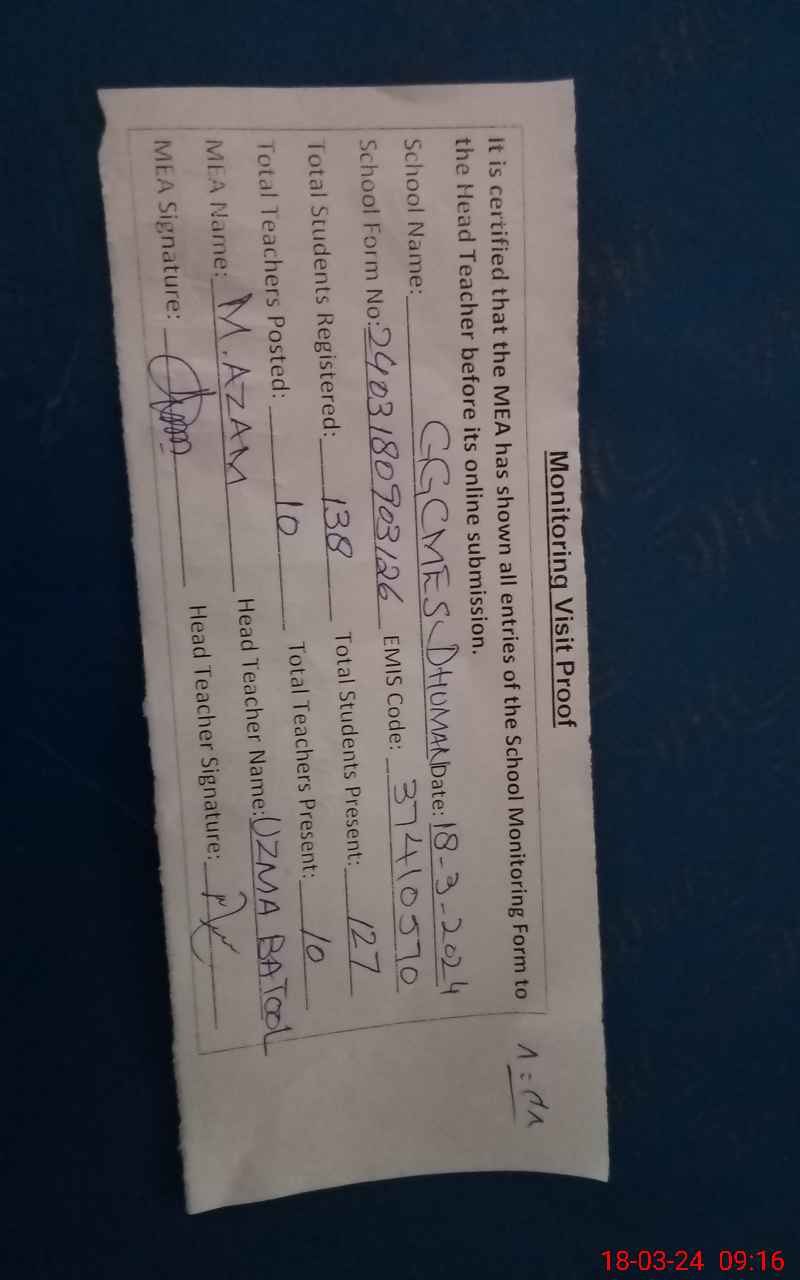 Monitoring Visit Proof
It is certified that the MEA has shown all entries of the School Monitoring Form to
the Head Teacher before its online submission.
School Name: GGCMES DHUMAN Date: 18-3-2024
School Form No: 2403180903126 EMIS Code: 37410570
Total Students Registered: 138 Total Students Present: 127
Total Teachers Posted: 10 Total Teachers Present: 10
MEA Name: M. AZAM Head Teacher Name: UZMA BATOOL
MEA Signature: Head Teacher Signature:
18-03-24 09:16